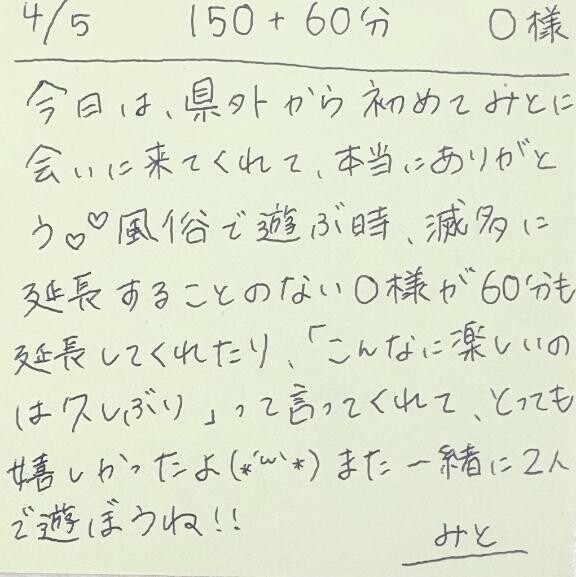 4/5 150+60分 O様
今日は、県外から初めてみとに
会いに来てくれて、本当にありがと
う♡♡風俗で遊ぶ時、滅多に
延長することのないO様が60分も
延長してくれたり、「こんなに楽しいの
は久しぶり」って言ってくれて、とっても
嬉しかったよ(*´ω`*)また一緒に2人
で遊ぼうね!!
みと